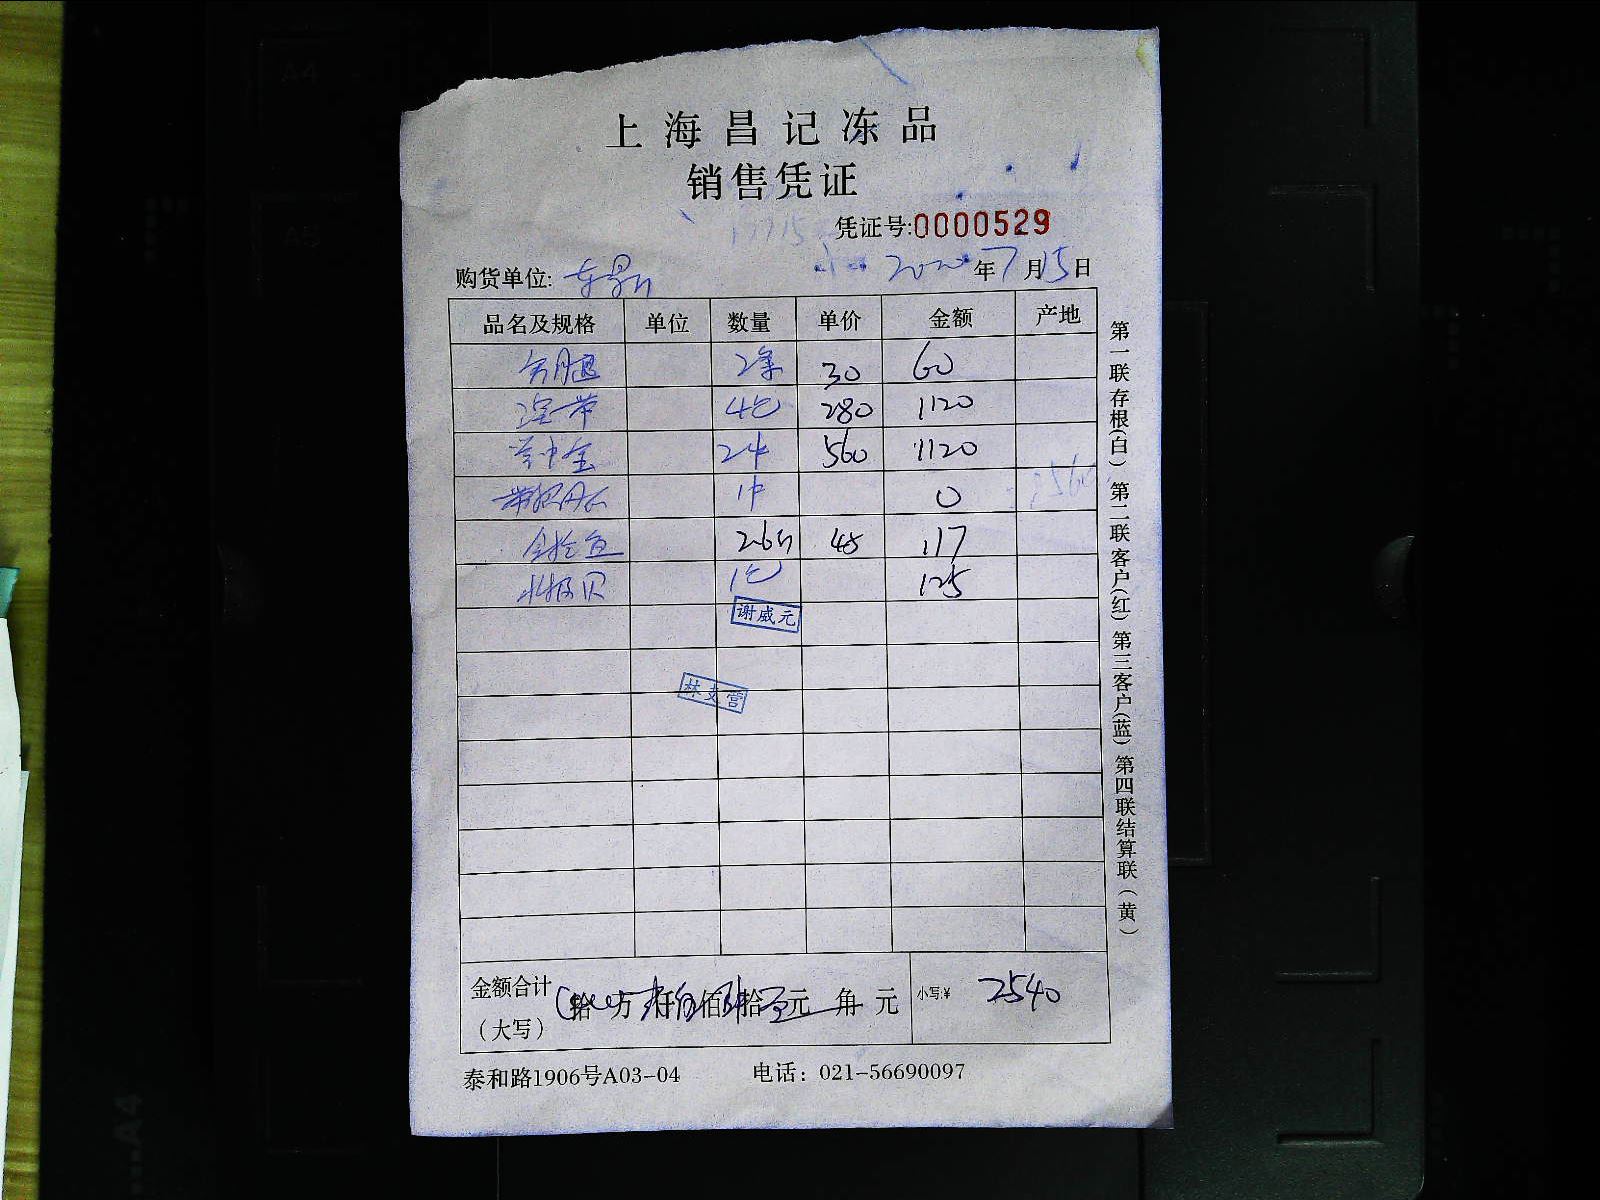 上海昌记冻品
销售凭证
凭证号:0000529
购货单位: 2020年7月15日
品名及规格 单位 数量 单价 金额 产地
腿 2条 30 60
带 4包 280 1120
24 560 1120
1件 0
2.6斤 45 117
北极贝 1包 125
谢威元
林文营
金额合计（大写） 拾 万 仟 佰 拾 元 角 元 小写:¥ 2540
泰和路1906号A03-04 电话：021-56690097
第一联存根(白) 第二联客户(红) 第三客户(蓝) 第四联结算联(黄)